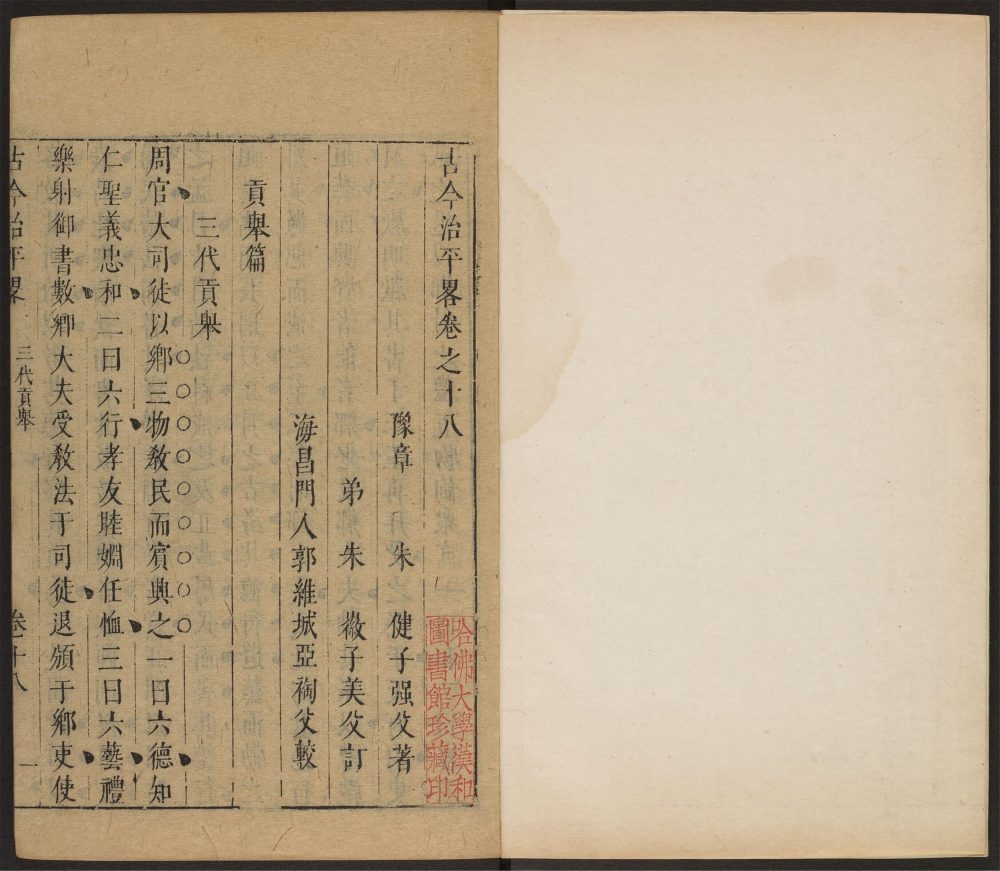 古今治平畧卷之十八
豫章 朱 健子强父著
弟 朱 徽子美父訂
海昌門人郭維城亞禂父較
貢舉篇
三代貢舉
周官大司徒以鄉三物敎民而賓興之一曰六德知
仁聖義忠和二曰六行孝友睦婣任恤三曰六藝禮
樂射御書數鄉大夫受敎法于司徒退頒于鄉吏使
古今治平畧 三代貢舉 卷十八 一
哈佛大學漢和
圖書館珍藏印